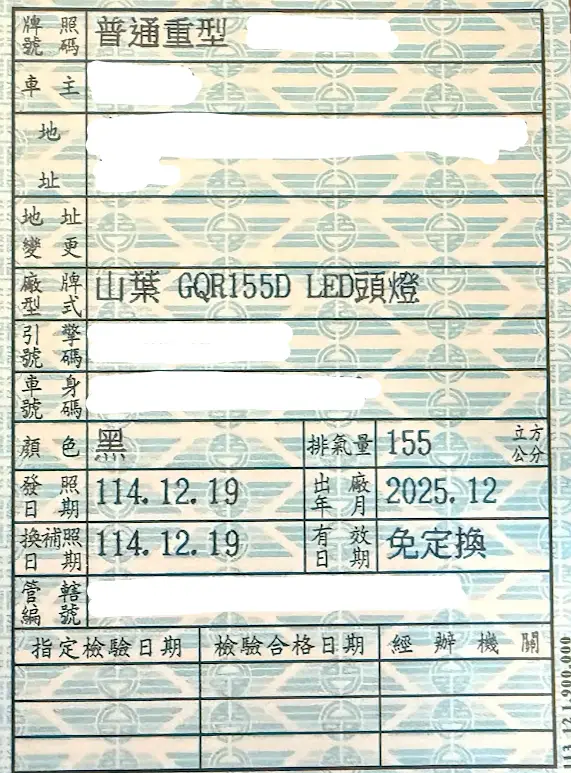 牌照號碼 普通重型
車主
地址
地址變更
廠牌型式 山葉 GQR155D LED頭燈
引擎號碼
車身號碼
顏色 黑 排氣量 155 立方公分
發照日期 114.12.19 出廠年月 2025.12
換補照日期 114.12.19 有效日期 免定換
管轄編號
指定檢驗日期 檢驗合格日期 經辦機關
113.12.1,900,000